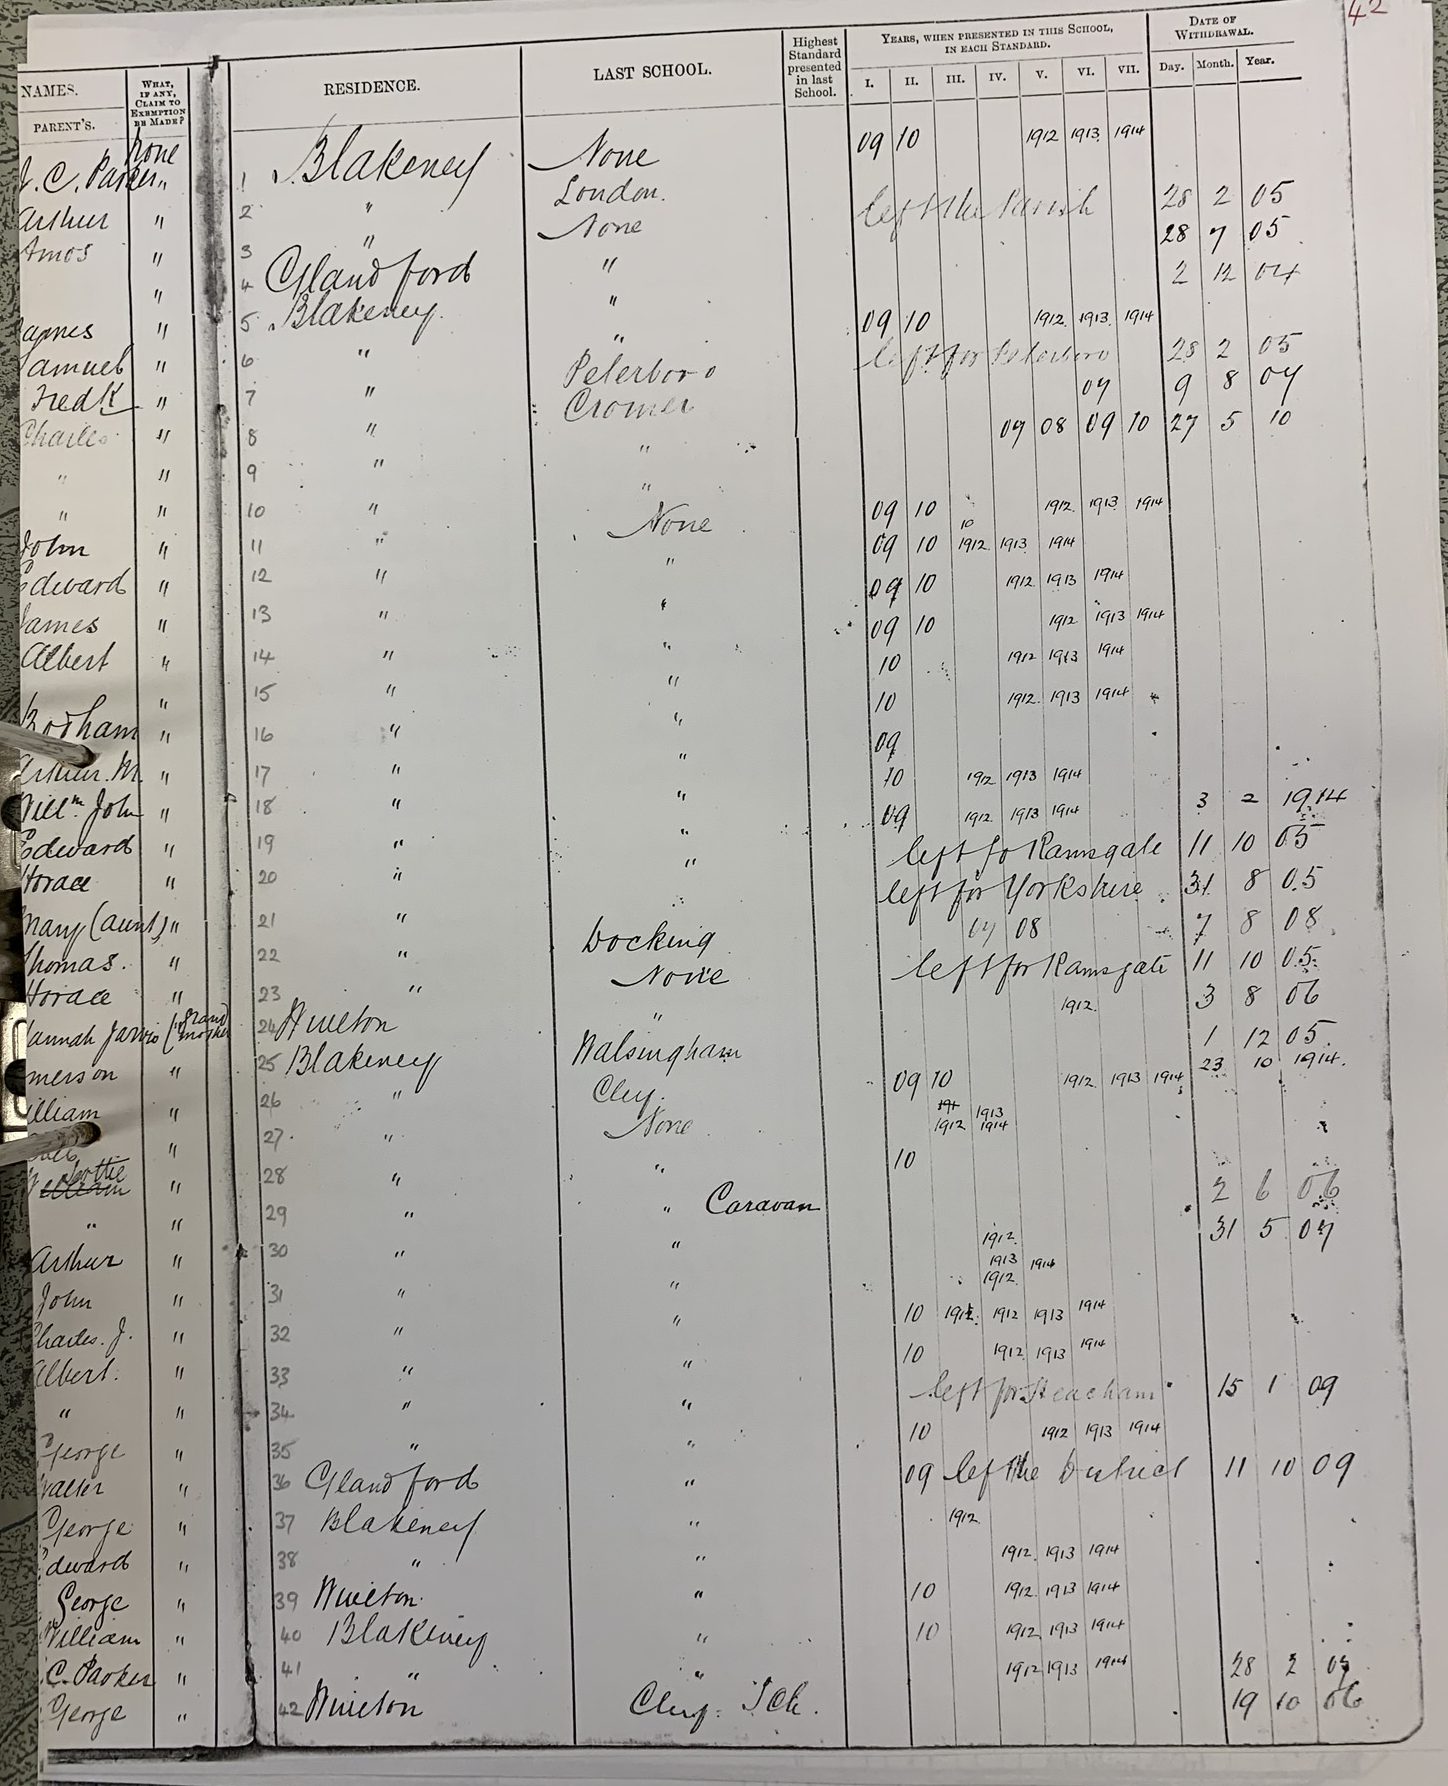 42
NAMES. WHAT, IF ANY, CLAIM TO EXEMPTION BE MADE? RESIDENCE. LAST SCHOOL. Highest Standard presented in last School. YEARS, WHEN PRESENTED IN THIS SCHOOL, IN EACH STANDARD. DATE OF WITHDRAWAL.
PARENT'S. I. II. III. IV. V. VI. VII. Day. Month. Year.
J. C. Parker none " 1 Blakeney None 09 10 1912 1913 1914
Arthur " 2 " London. left the Parish 28 2 05
Amos " 3 " None 28 7 05
" 4 Glandford " 2 12 04
James " 5 Blakeney. " 09 10 1912 1913 1914
Samuel " 6 " " left for Peterboro 28 2 05
Fredk " 7 " Peterboro 07 9 8 07
Charles " 8 " Cromer 07 08 09 10 27 5 10
" " 9 " "
" " 10 " " 09 10 1912 1913 1914
John " 11 " None 09 10 10 1912 1913 1914
Edward " 12 " " 09 10 1912 1913 1914
James " 13 " " 09 10 1912 1913 1914
Albert " 14 " " 10 1912 1913 1914
" 15 " " 10 1912 1913 1914
Bodham " 16 " " 09
Arthur. M. " 17 " " 10 1912 1913 1914
Willm. John " 18 " " 09 1912 1913 1914 3 2 1914
Edward " 19 " " left fo Ramsgate 11 10 05
Horace " 20 " " left for Yorkshire 31 8 05
Mary (aunt) " 21 " " 07 08 7 8 08
Thomas. " 22 " Docking left for Ramsgate 11 10 05
Horace " 23 " None 1912 3 8 06
Hannah Jarvis (grand mother 24 Wiveton " 1 12 05
Emerson " 25 Blakeney Walsingham 09 10 1912 1913 1914 23 10 1914.
William " 26 " Cley. 1912 1913 1914
" 27 " None 10
William Lottie " 28 " " 2 6 06
" " 29 " " Caravan 31 5 07
Arthur " 30 " " 1912 1913 1914
John " 31 " " 1912 10 1912 1912 1913 1914
Charles. J. " 32 " " 10 1912 1913 1914
Albert. " 33 " " left for Heacham 15 1 09
" " 34 " " 10 1912 1913 1914
George " 35 " " 09 left the District 11 10 09
Walter " 36 Glandford "
George " 37 Blakeney " 1912
Edward " 38 " " 1912 1913 1914
George " 39 Wiveton. " 10 1912 1913 1914
William " 40 Blakeney " 10 1912 1913 1914
C. Parker " 41 " " 1912 1913 1914 28 2 05
George " 42 Wiveton Cley. Sch. 19 10 06